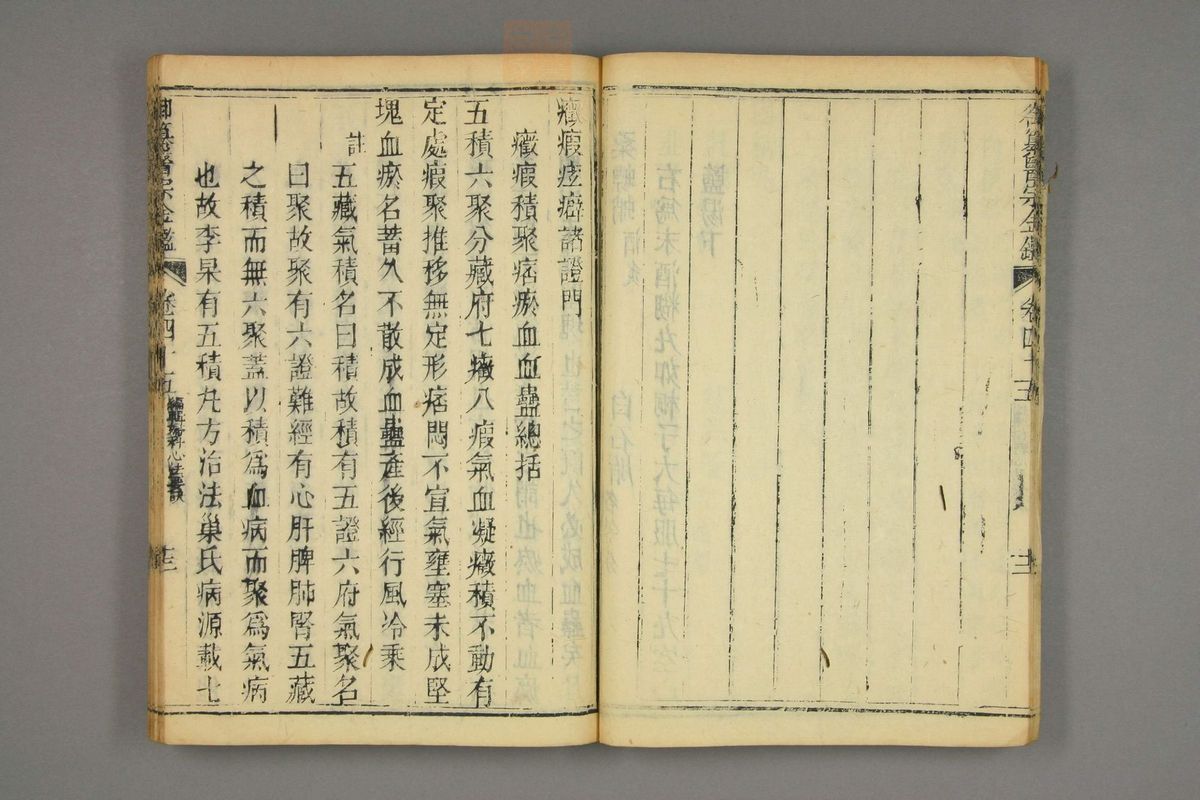 御纂醫宗金鑑 卷四十五
十二
癥瘕痃癖諸證門
癥瘕積聚痞瘀血血蠱總括
五積六聚分藏府七癥八瘕氣血凝癥積不動有
定處瘕聚推移無定形痞悶不宣氣壅塞未成堅
塊血瘀名蓄久不散成血蠱產後經行風冷乘
註 五藏氣積名曰積故積有五證六府氣聚名
曰聚故聚有六證難經有心肝脾肺腎五藏
之積而無六聚蓋以積爲血病而聚爲氣病
也故李杲有五積丸方治法巢氏病源載七
御纂醫宗金鑑 卷四十五 編輯婦科心法要訣
十三